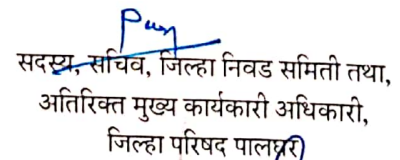 सदस्य, सचिव, जिल्हा निवड समिती तथा,
अतिरिक्त मुख्य कार्यकारी अधिकारी,
जिल्हा परिषद पालघर